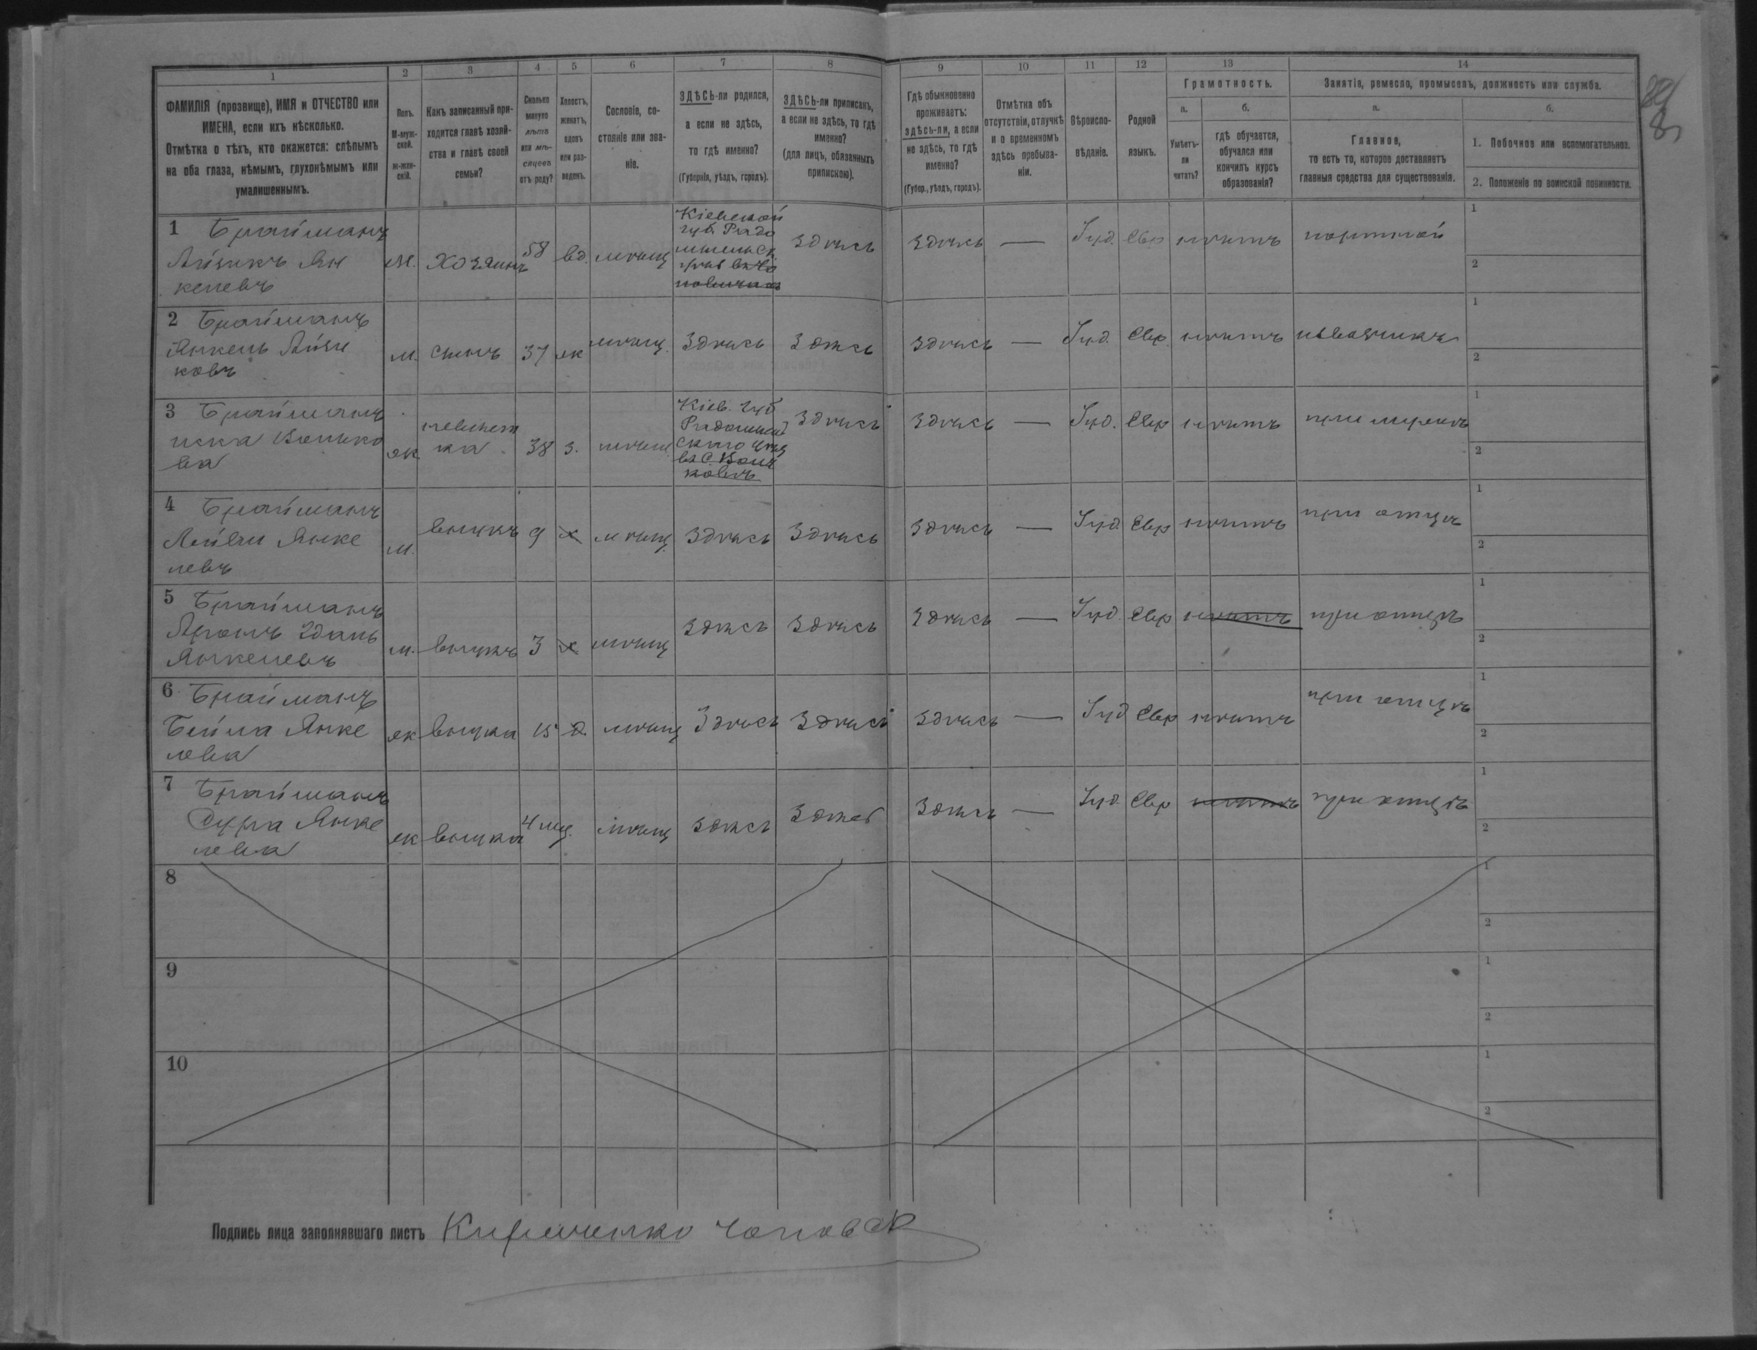 1 2 3 4 5 6 7 8 9 10 11 12 13 14
ФАМИЛІЯ (прозвище), ИМЯ и ОТЧЕСТВО или
ИМЕНА, если ихъ нѣсколько.
Отмѣтка о тѣхъ, кто окажется: слѣпымъ
на оба глаза, нѣмымъ, глухонѣмымъ или
умалишеннымъ.
Полъ.
М-муж-
ской.
ж-жен-
скій.
Какъ записанный при-
ходится главѣ хозяй-
ства и главѣ своей
семьи?
Сколько
минуло
лѣтъ
или мѣ-
сяцевъ
отъ роду?
Холостъ,
женатъ,
вдовъ
или раз-
веденъ.
Сословіе, со-
стояніе или зва-
ніе.
ЗДѢСЬ-ли родился,
а если не здѣсь,
то гдѣ именно?
(Губернія, уѣздъ, городъ).
ЗДѢСЬ-ли приписанъ,
а если не здѣсь, то гдѣ
именно?
(для лицъ, обязанныхъ
припискою).
Гдѣ обыкновенно
проживаетъ:
здѣсь-ли, а если
не здѣсь, то гдѣ
именно?
(Губер., уѣздъ, городъ).
Отмѣтка объ
отсутствіи, отлучкѣ
и о временномъ
здѣсь пребыва-
ніи.
Вѣроиспо-
вѣданіе.
Родной
языкъ.
Грамотность.
а.
Умѣетъ-
ли
читать?
б.
гдѣ обучается,
обучался или
кончилъ курсъ
образованія?
Занятія, ремесло, промыселъ, должность или служба.
а.
Главное,
то есть то, которое доставляетъ
главныя средства для существованія.
б.
1. Побочное или вспомогательное.
2. Положеніе по воинской повинности.
1 Брайманъ
Айзикъ Ян
келевъ
м. хозяинъ 58 вд. мѣщ
Кіевской
губ Радо
мысльск.
здѣсь здѣсь — Іуд Евр нѣтъ портной
1
2
2 Брайманъ
Янкель Айзи
ковъ
м. сынъ 37 ж мѣщ. здѣсь здѣсь здѣсь — Іуд. Евр нѣтъ извозчикъ
1
2
3 Брайманъ
ка
ж невѣст
ка 38 з. мѣщ
Кіев. губ
Радомысль
скаго уѣз
здѣсь здѣсь — Іуд. Евр нѣтъ при мужѣ
1
2
4 Брайманъ
Янке
левъ
м. внукъ 9 х мѣщ здѣсь здѣсь здѣсь — Іуд Евр нѣтъ при отцѣ
1
2
5 Брайманъ
Янкелевъ
м. внукъ 3 х мѣщ здѣсь здѣсь здѣсь — Іуд Евр нѣтъ при отцѣ
1
2
6 Брайманъ
Бейла Янке
лева
ж внучка 15 д. мѣщ здѣсь здѣсь здѣсь — Іуд Евр нѣтъ при отцѣ
1
2
7 Брайманъ
Сура Янке
лева
ж внучка 4 мѣс. мѣщ здѣсь здѣсь здѣсь — Іуд Евр нѣтъ при отцѣ
1
2
8
1
2
9
1
2
10
1
2
Подпись лица заполнявшаго листъ